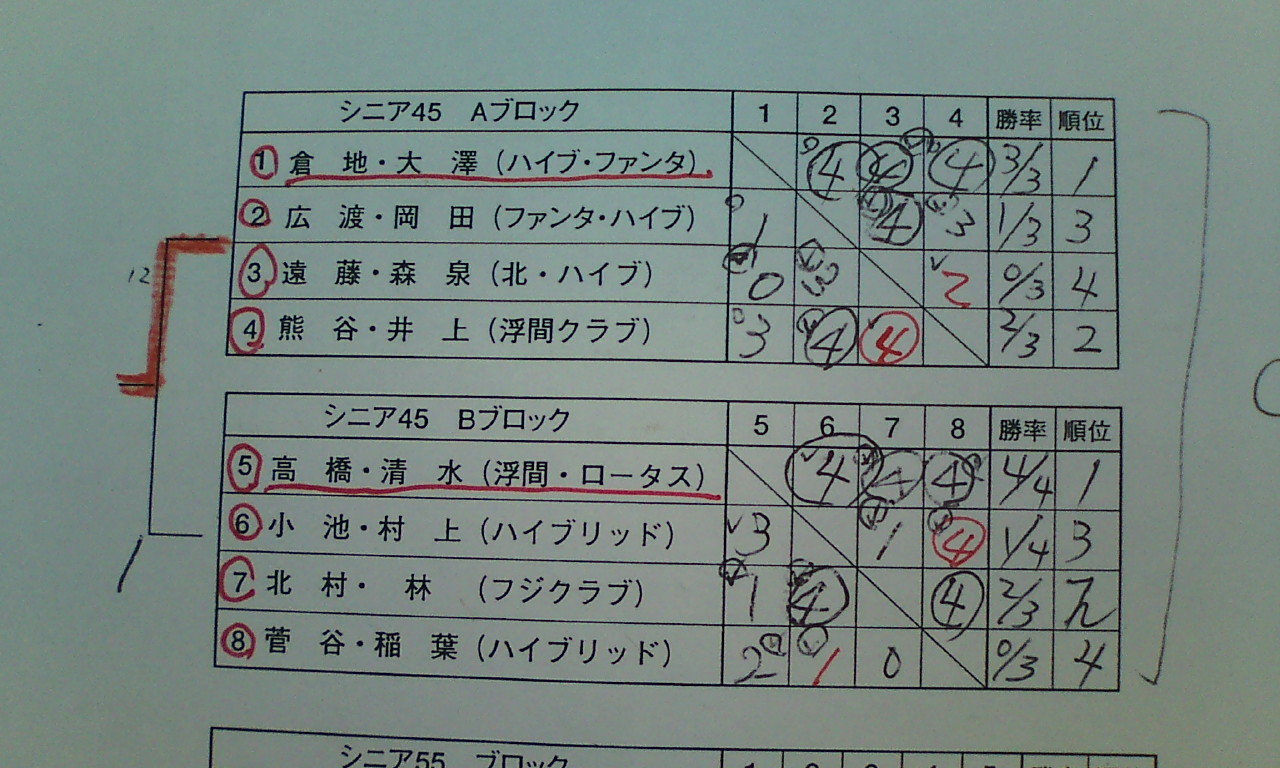 シニア45 Aブロック 1 2 3 4 勝率 順位
① 倉 地・大 澤 (ハイブ・ファンタ) ④ ④ ④ 3/3 1
② 広 渡・岡 田 (ファンタ・ハイブ) 1 ④ 3 1/3 3
12
③ 遠 藤・森 泉 (北・ハイブ) 0 3 2 0/3 4
④ 熊 谷・井 上 (浮間クラブ) 3 ④ ④ 2/3 2
シニア45 Bブロック 5 6 7 8 勝率 順位
⑤ 高 橋・清 水 (浮間・ロータス) ④ ④ ④ 4/4 1
⑥ 小 池・村 上 (ハイブリッド) 3 1 ④ 1/4 3
⑦ 北 村・ 林 (フジクラブ) 1 ④ ④ 2/3
⑧ 菅 谷・稲 葉 (ハイブリッド) 2 1 0 0/3 4
シニア55 ブロック